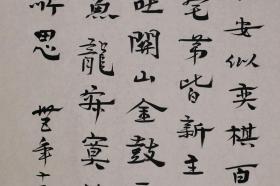 安似奕棋百
宅第皆新主
北關山金鼓
魚龍寂寞
所思
年十